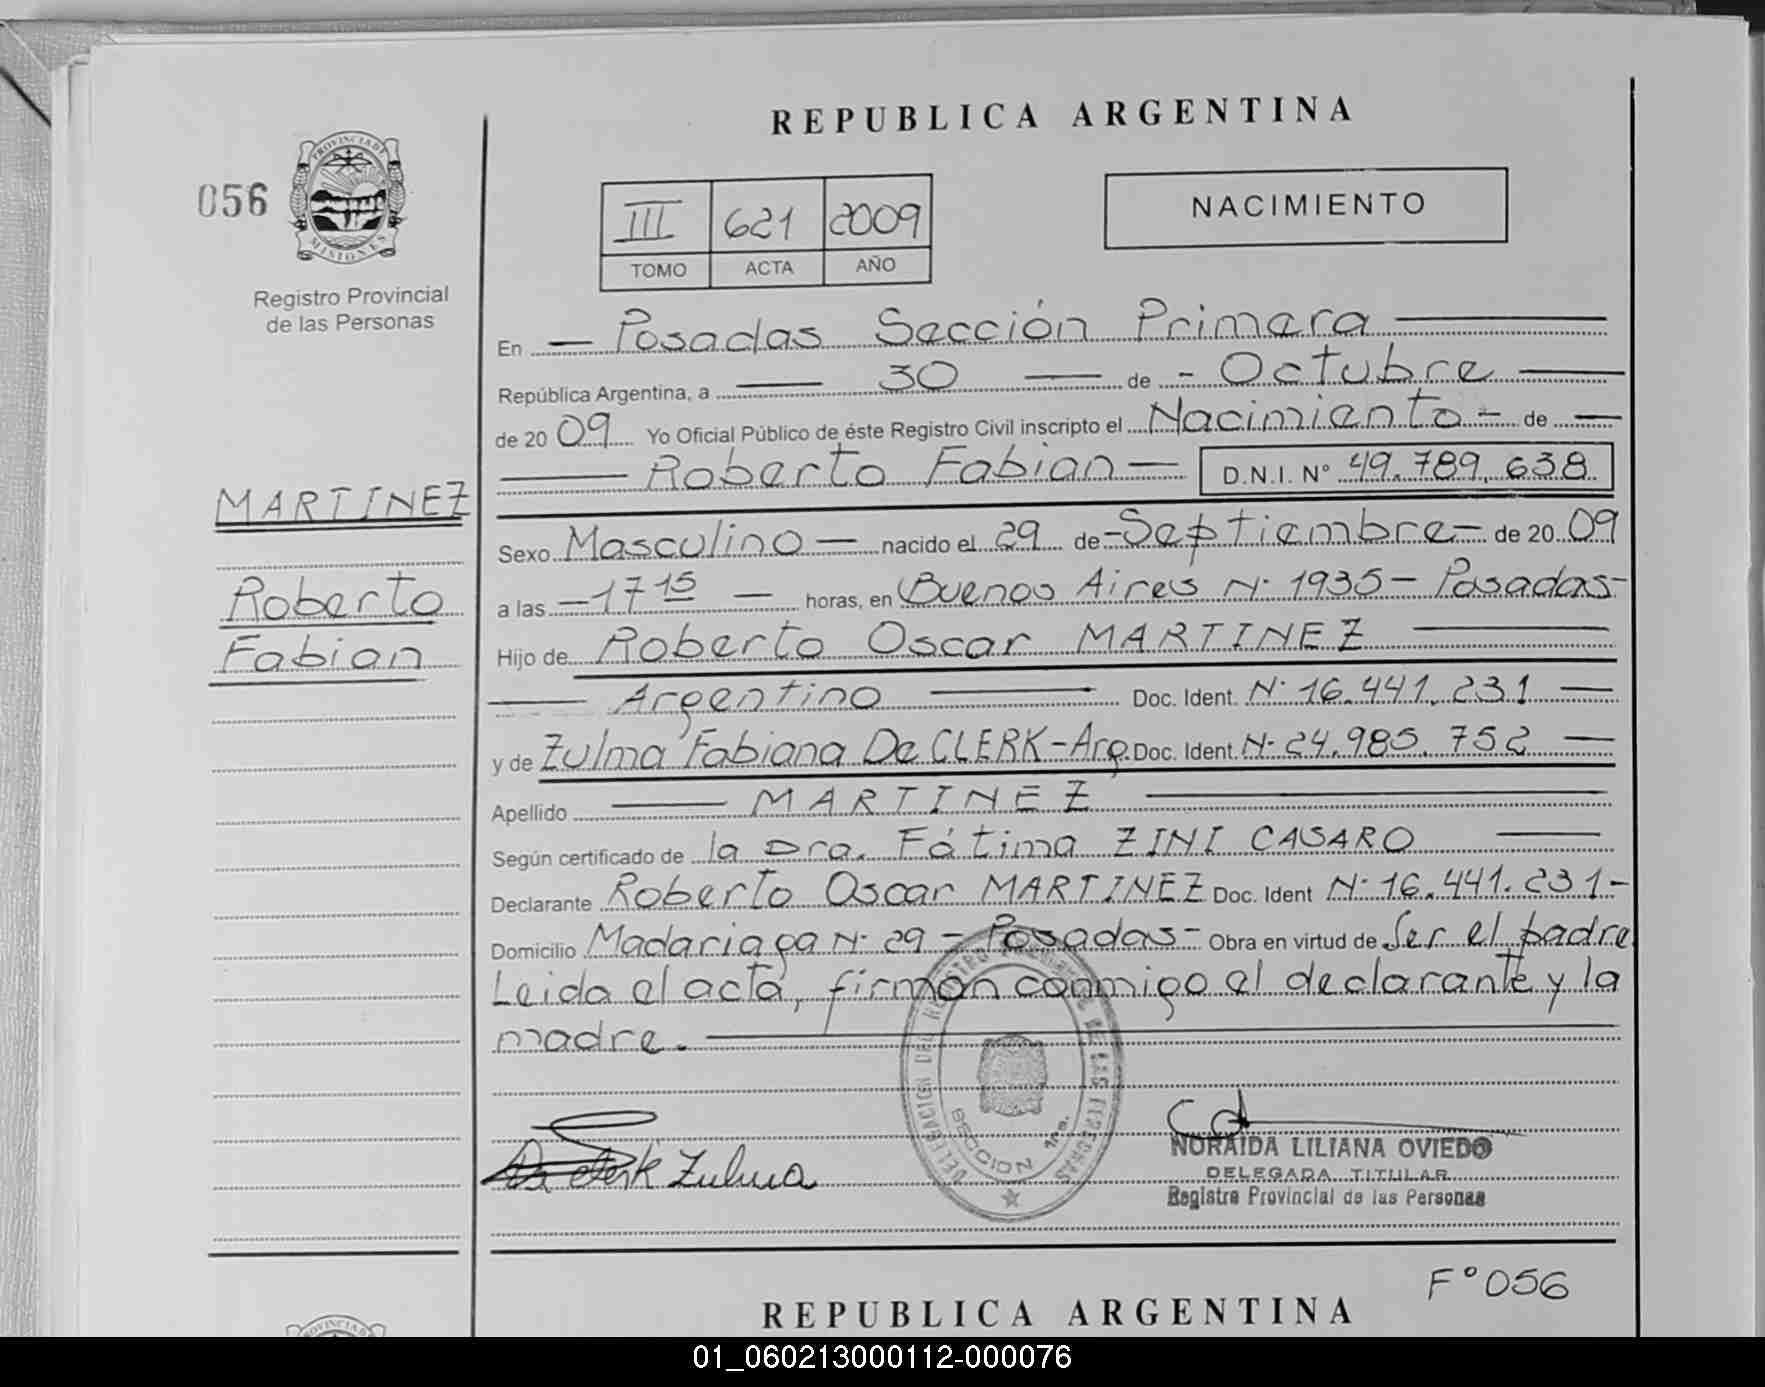 REPUBLICA ARGENTINA
056
PROVINCIA DE
MISIONES
Registro Provincial
de las Personas
III 621 2009
TOMO ACTA AÑO
NACIMIENTO
En — Posadas Sección Primera —
República Argentina, a — 30 — de - Octubre —
de 2009 Yo Oficial Público de éste Registro Civil inscripto el Nacimiento - de —
— Roberto Fabian — D.N.I. N° 49.789.638
MARTINEZ
Roberto
Fabian
Sexo Masculino — nacido el 29 de - Septiembre - de 2009
a las — 17 15 — horas, en Buenos Aires N° 1935 - Posadas -
Hijo de Roberto Oscar MARTINEZ —
— Argentino — Doc. Ident. N° 16.441.231 —
y de Zulma Fabiana De CLERK - Arg. Doc. Ident. N° 24.985.752 —
Apellido — MARTINEZ —
Según certificado de la Dra. Fátima ZINI CASARO —
Declarante Roberto Oscar MARTINEZ Doc. Ident N° 16.441.231 -
Domicilio Madariaga N° 29 - Posadas - Obra en virtud de Ser el padre
Leida el acta, firman conmigo el declarante y la
madre. —
DELEGACION DEL REGISTRO PROVINCIAL DE LAS PERSONAS
SECCION 1ra.
De clerk Zulma
NORAIDA LILIANA OVIEDO
DELEGADA TITULAR
Registro Provincial de las Personas
F° 056
REPUBLICA ARGENTINA
PROVINCIA D
01_060213000112-000076